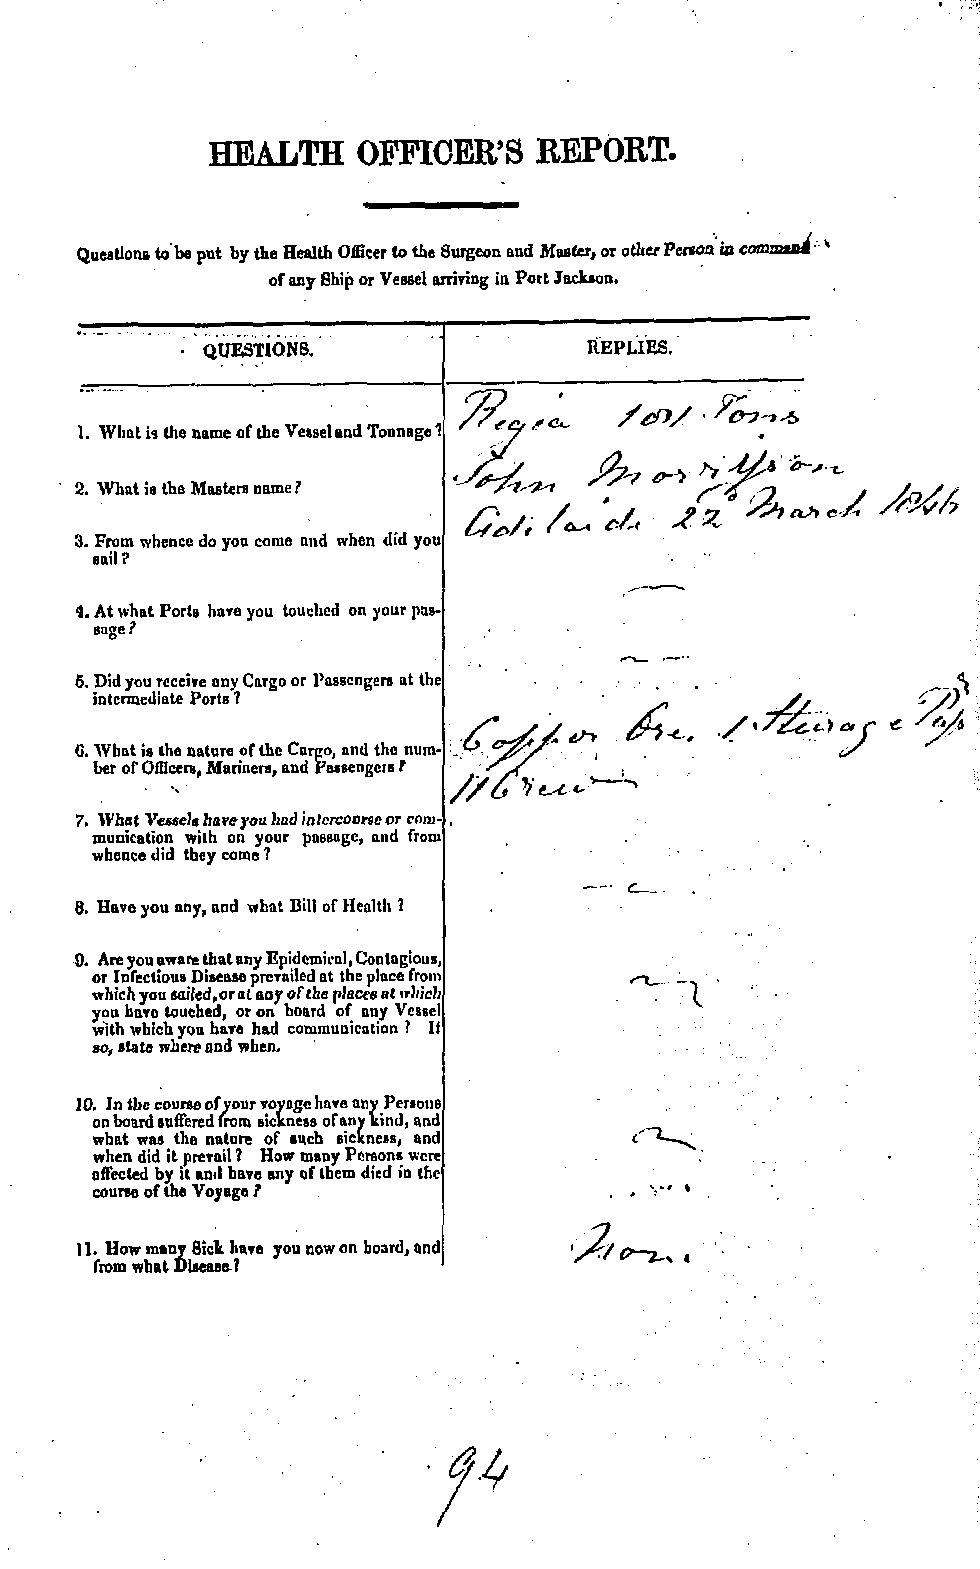 HEALTH OFFICER'S REPORT.
Questions to be put by the Health Officer to the Surgeon and Master, or other Person in command
of any Ship or Vessel arriving in Port Jackson.
QUESTIONS.
REPLIES.
1. What is the name of the Vessel and Tonnage?
Regia Tons
2. What is the Masters name?
John Morrison
3. From whence do you come and when did you
sail?
Adelaide 22d March 1846
4. At what Ports have you touched on your pas-
sage?
5. Did you receive any Cargo or Passengers at the
intermediate Ports?
6. What is the nature of the Cargo, and the num-
ber of Officers, Mariners, and Passengers?
Copper Ore, 1 Sturage Pass
11 Crew
7. What Vessels have you had intercourse or com-
munication with on your passage, and from
whence did they come?
8. Have you any, and what Bill of Health?
9. Are you aware that any Epidemical, Contagious,
or Infectious Disease prevailed at the place from
which you sailed, or at any of the places at which
you have touched, or on board of any Vessel
with which you have had communication? If
so, state where and when.
10. In the course of your voyage have any Persons
on board suffered from sickness of any kind, and
what was the nature of such sickness, and
when did it prevail? How many Persons were
affected by it and have any of them died in the
course of the Voyage?
11. How many Sick have you now on board, and
from what Disease?
None
94